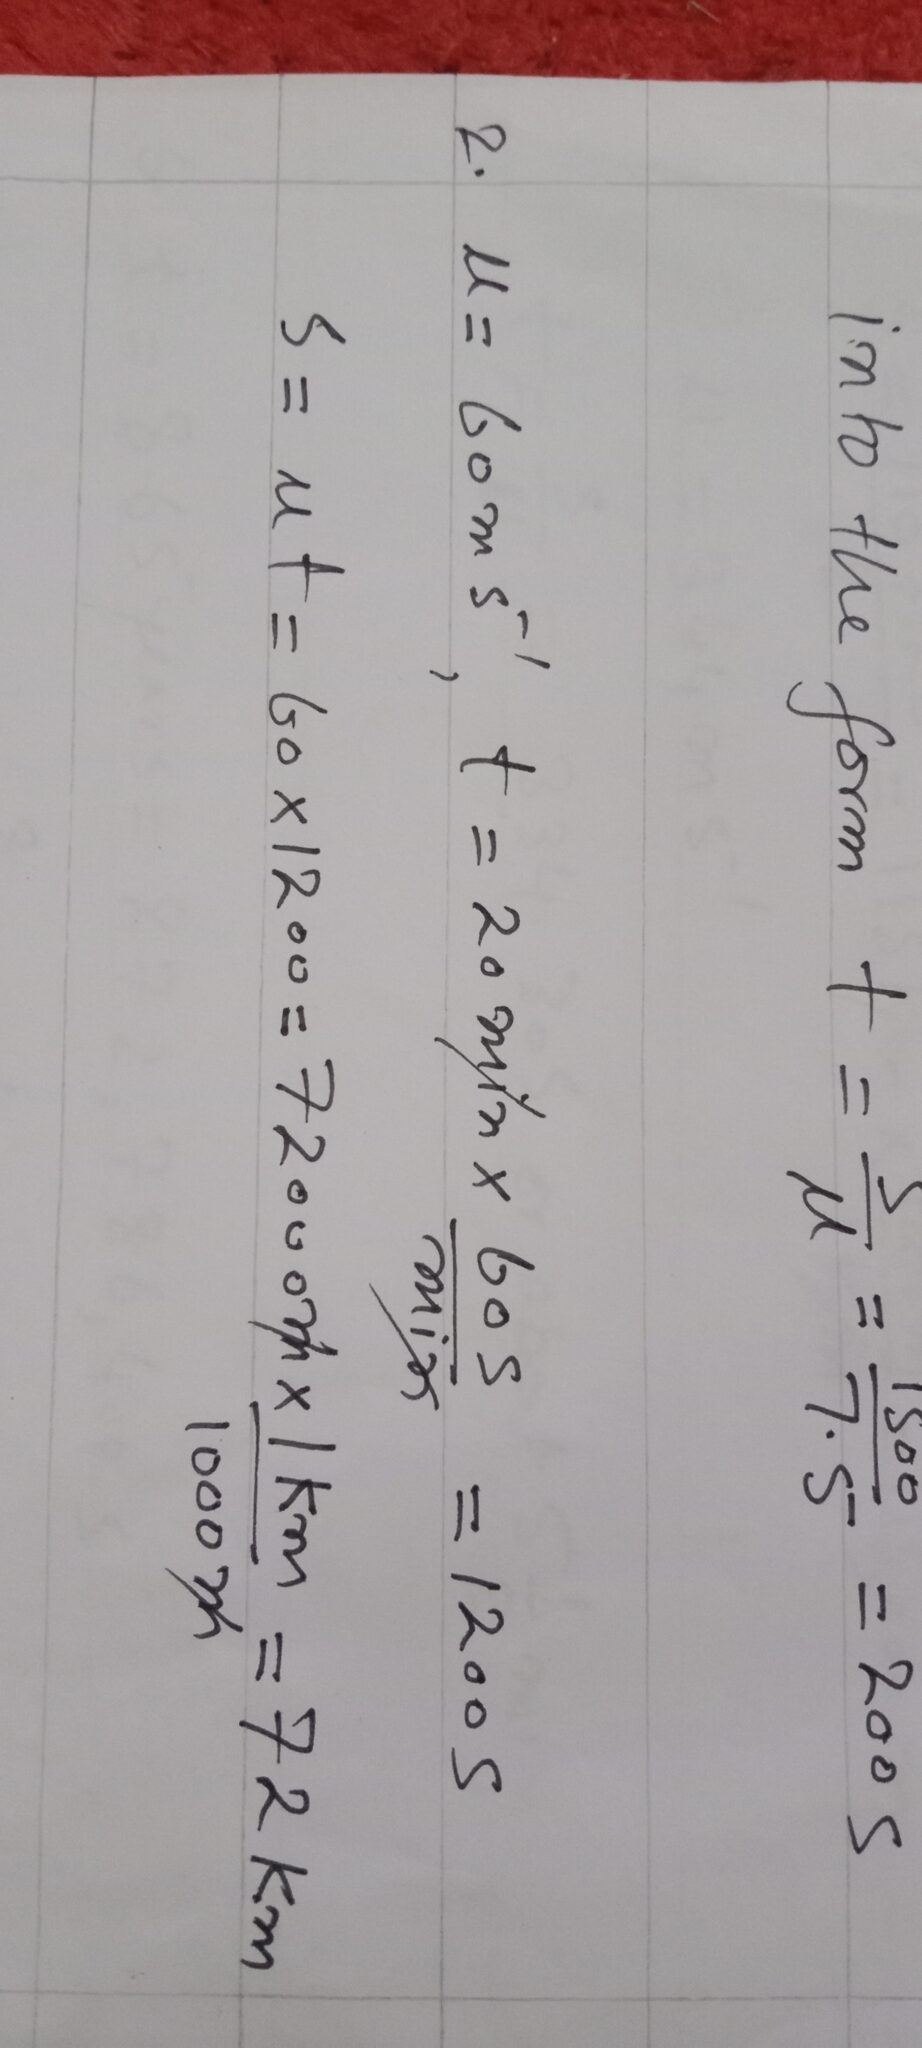 into the form t = s/u = 1500/7.5 = 200 s
2. u = 60 m s⁻¹, t = 20 min x 60 s/min = 1200 s
s = ut = 60 x 1200 = 72000 m x 1 km/1000 m = 72 km